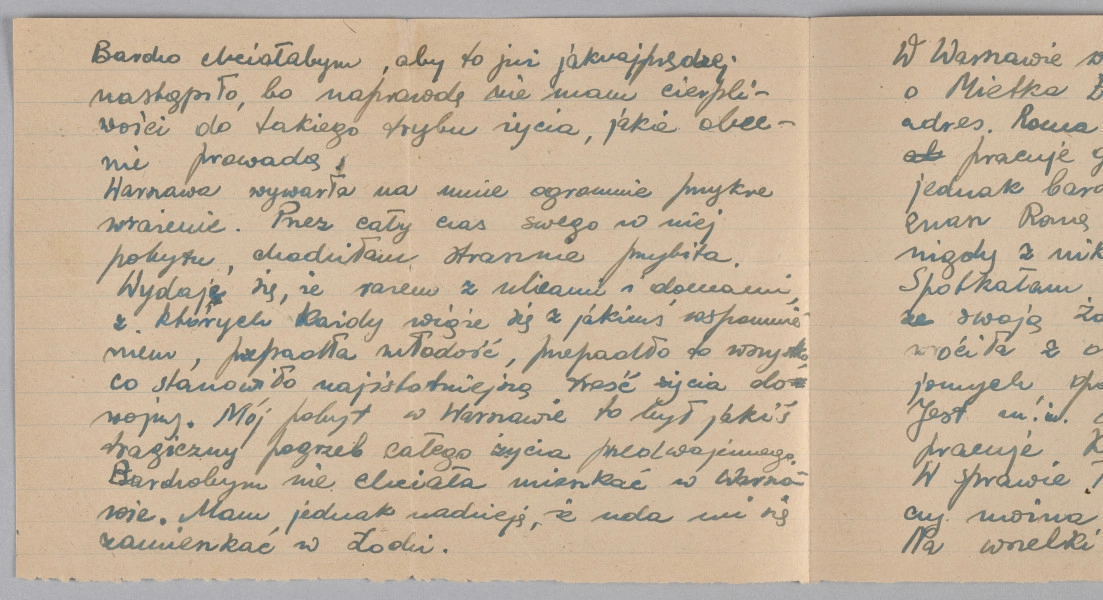 Bardzo chciałabym, aby to już jaknajprędzej
nastąpiło, bo naprawdę nie mam cierpli-
wości do takiego trybu życia, jakie obec-
nie prowadzę.
Warszawa wywarła na mnie ogromnie przykre
wrażenie. Przez cały czas swego w niej
pobytu, chodziłam strasznie przybita.
Wydaje się, że razem z ulicami i domami,
z których każdy wiąże się z jakimś wspomnie
niem, przepadła młodość, przepadło to wszystko
co stanowiło najistotniejszą treść życia do
wojny. Mój pobyt w Warszawie to był jakiś
tragiczny pogrzeb całego życia przedwojennego.
Bardzobym nie chciała mieszkać w Warsza-
wie. Mam jednak nadzieję, że uda mi się
zamieszkać w Łodzi.
W Warszawie
o Mietka
adres. Roma
pracuje
jednak
znasz Romę
nigdy z
Spotkałam
ze swoją
wróciła z
jomych
Jest m.in.
pracuje
W sprawie
czy można
Na wszelki